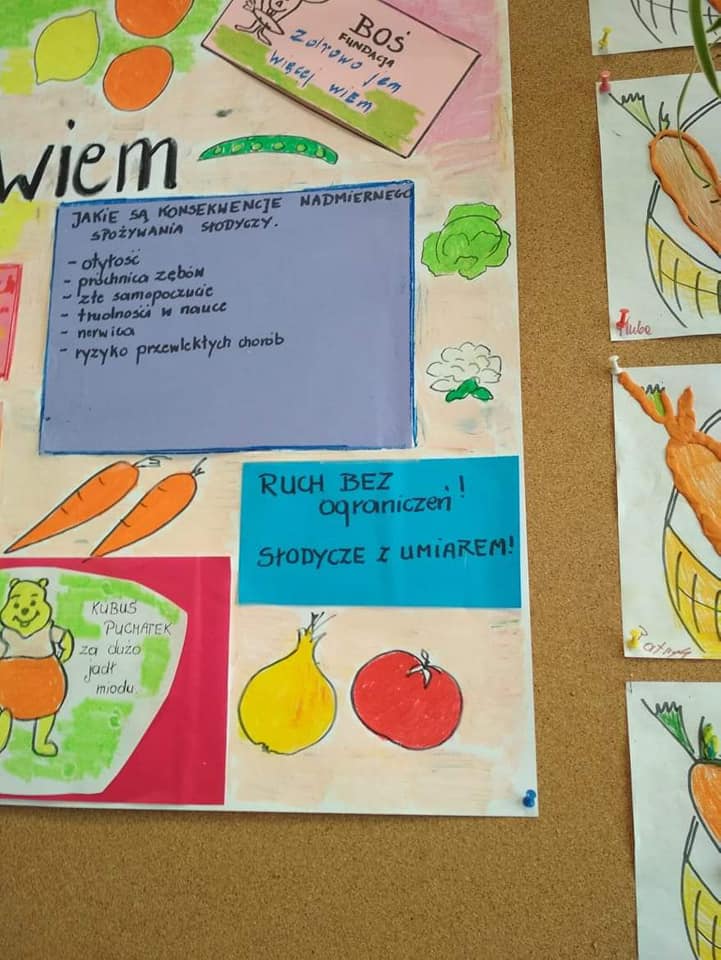 BOŚ
FUNDACJA
Zdrowo jem
więcej wiem
wiem
JAKIE SĄ KONSEKWENCJE NADMIERNEGO
SPOŻYWANIA SŁODYCZY.
- otyłość
- próchnica zębów
- złe samopoczucie
- trudności w nauce
- nerwica
- ryzyko przewlekłych chorób
RUCH BEZ
ograniczeń!
SŁODYCZE Z UMIAREM!
KUBUŚ
PUCHATEK
za dużo
jadł
miodu.